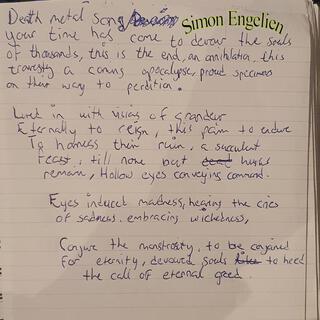 Death metal song
Simon Engelien
your time has come to devour the souls
of thousands, this is the end, an annihilation, this
travesty a coming apocalypse, proud specimens
on their way to perdition.
Lured in with visions of grandeur
Eternally to reign, this pain to endure
To harness their ruin, a succulent
feast, till none but husks
remain, Hollow eyes conveying command.
Eyes induced madness, hearing the cries
of sadness. embracing wickedness,
Conjure the monstrosity, to be conjoined
for eternity, devoured souls to heed
the call of eternal greed.